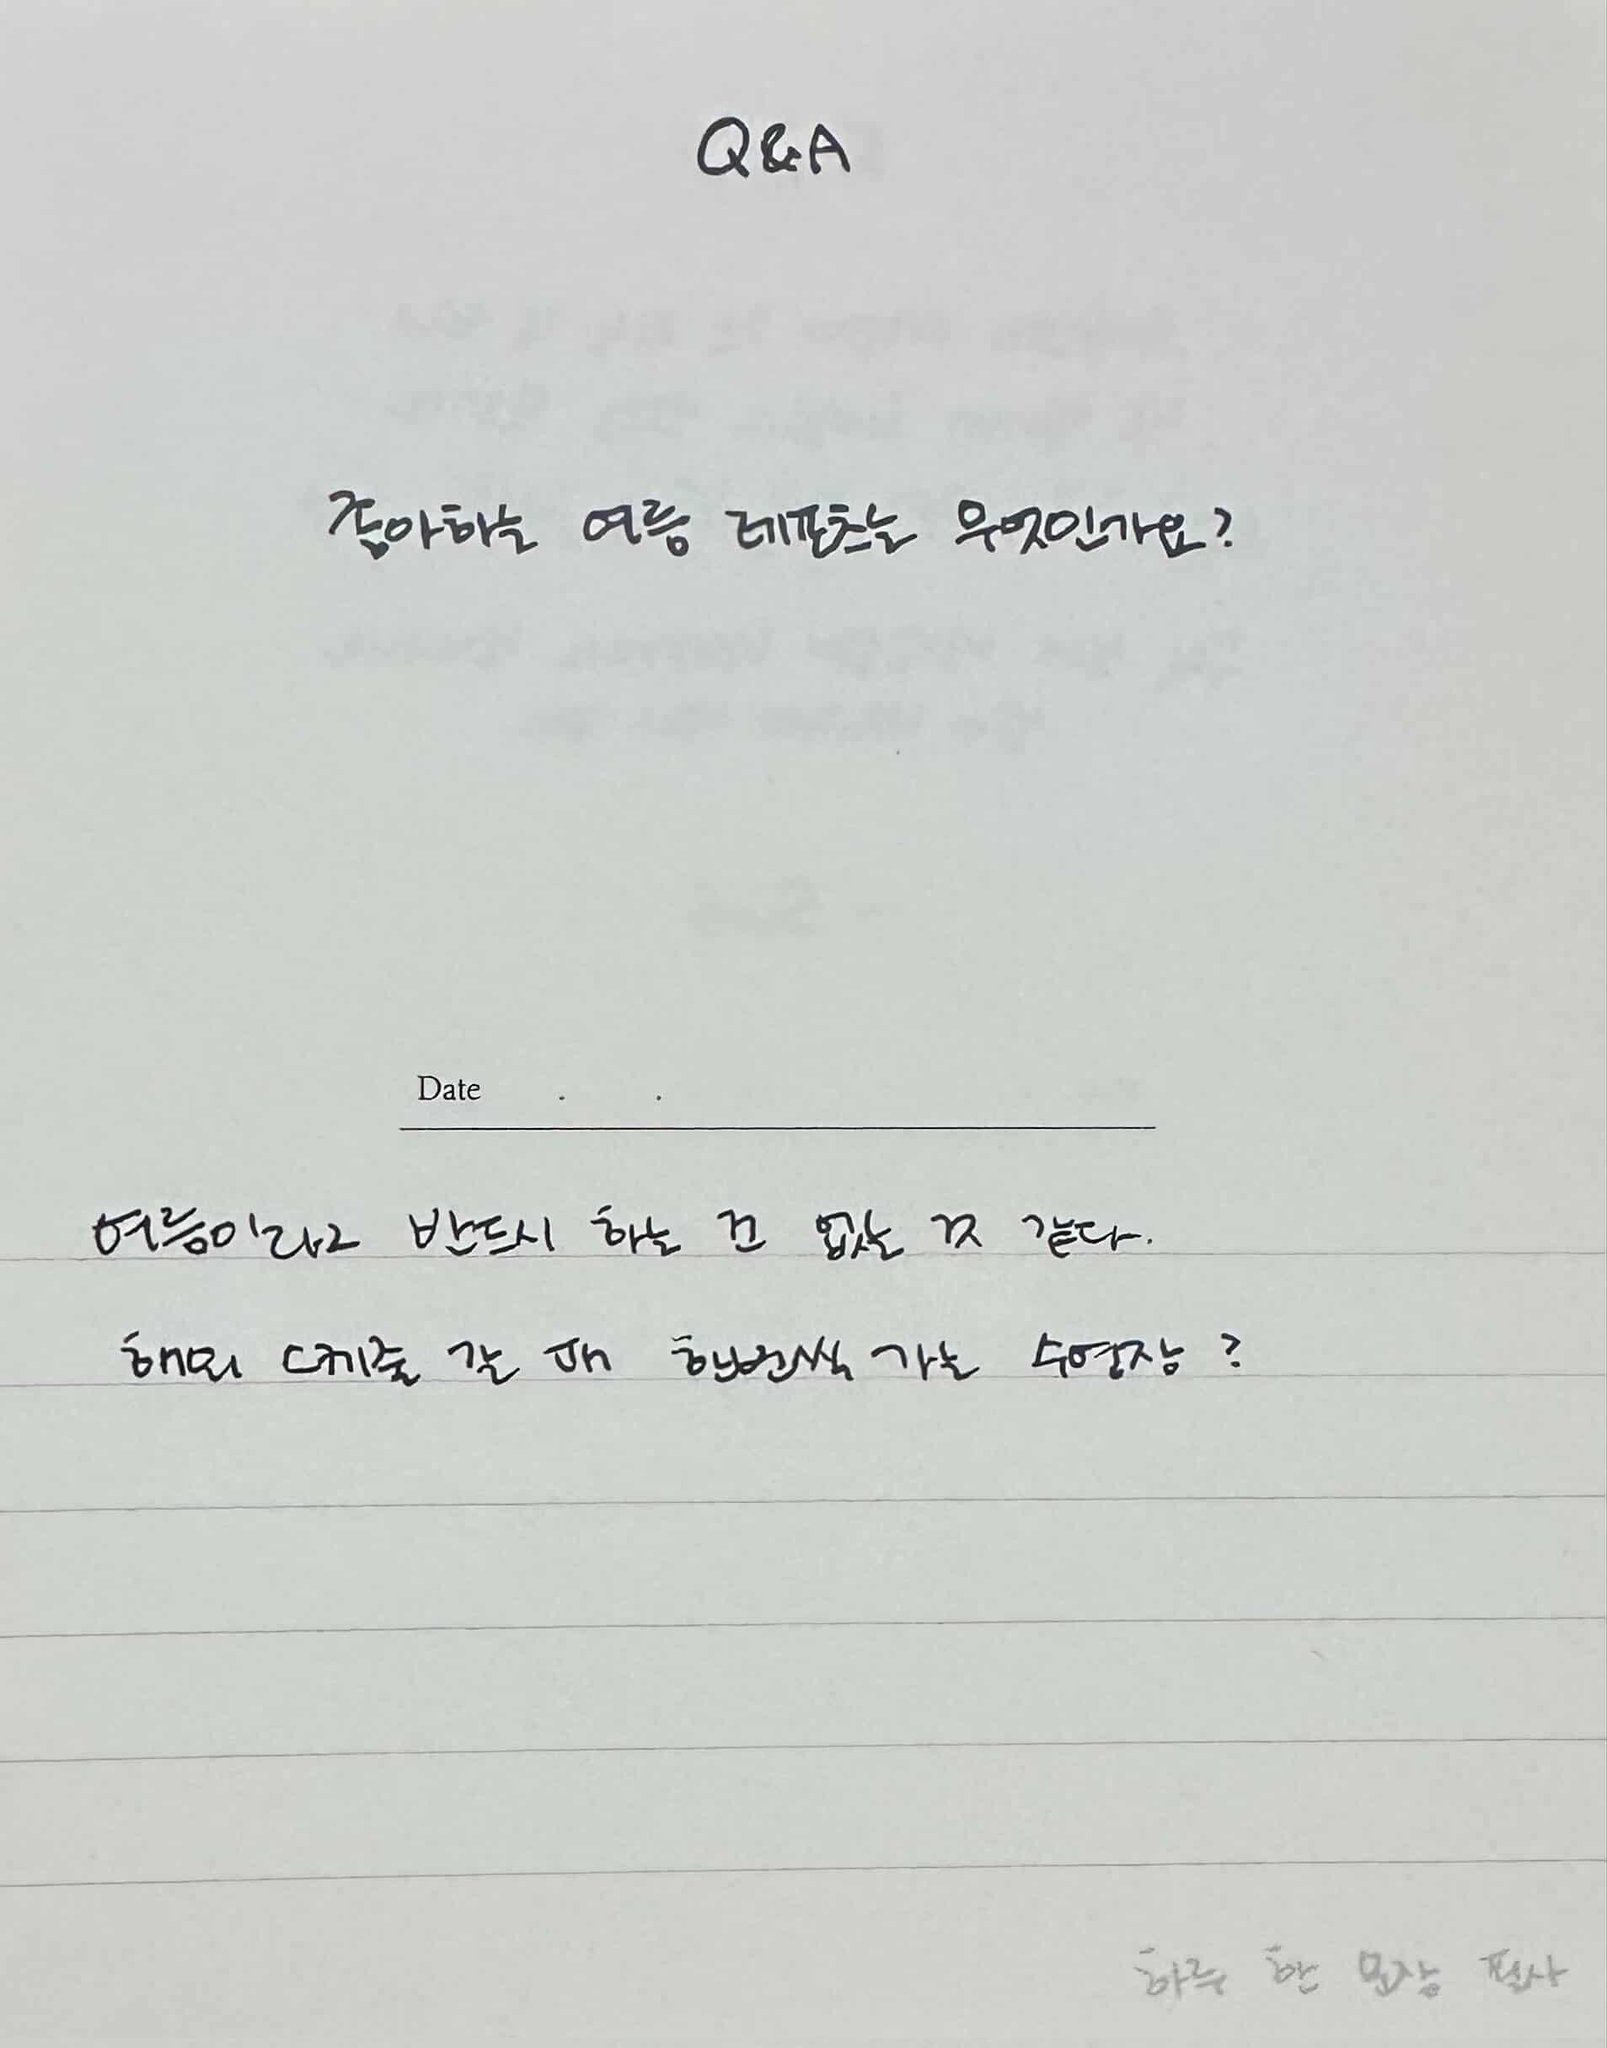 Q&A
좋아하는 여름 레포츠는 무엇인가요?
Date . .
여름이라고 반드시 하는 건 없는 것 같다.
해외 갈 때 한번씩 가는 수영장?
하루 한 문장 필사